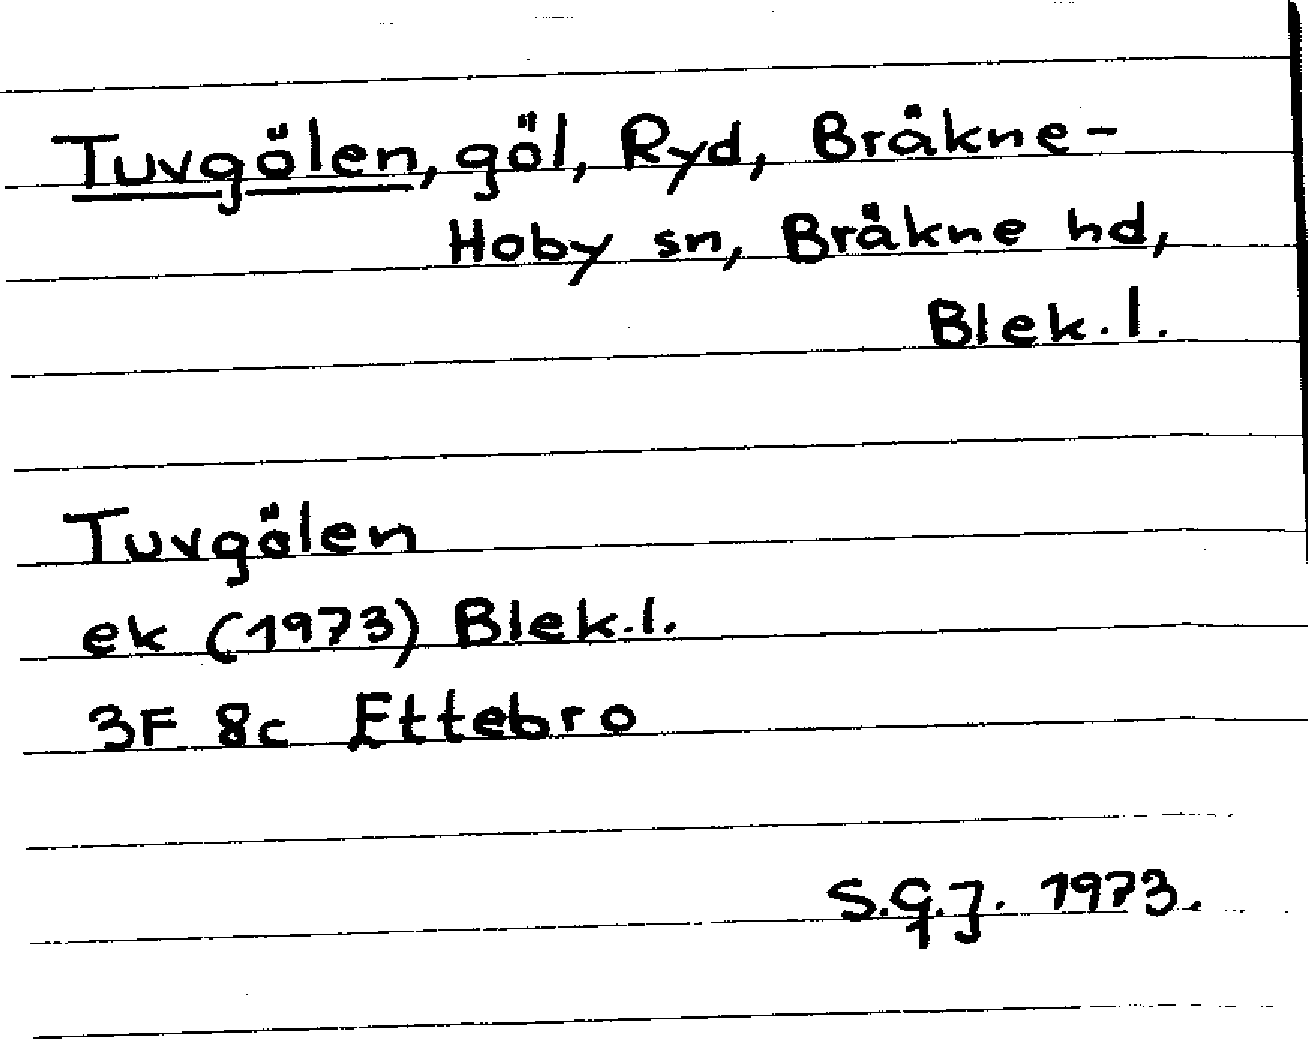 Tuvgölen, göl, Ryd, Bräkne-
Hoby sn, Bräkne hd,
Blek. l.
Tuvgölen
ek (1973) Blek. l.
3F 8c Ettebro
S.G.J. 1973.